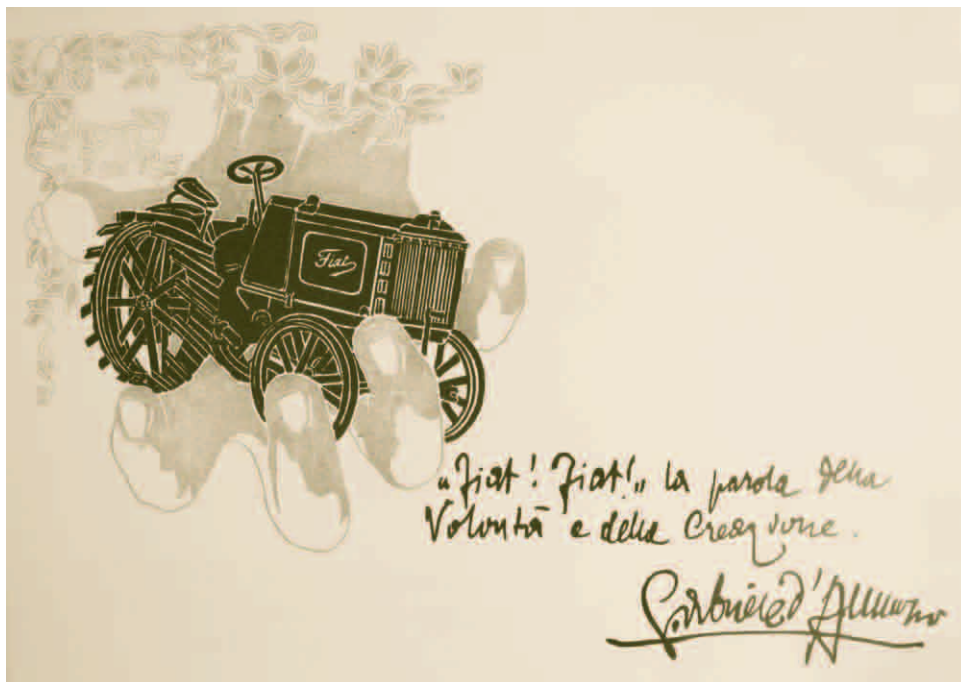 Fiat
„Fiat! Fiat!„ la parola della
Volontà e della Creazione.
Gabriele d'Annunzio